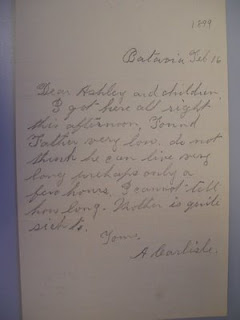 1899
Batavia Feb 16
Dear Ashley and children
I got here all right
this afternoon, Found
Father very low. do not
think he can live very
long perhaps only a
few hours. I cannot tell
how long. Mother is quite
sick to.
Yours.
A Carlisle.